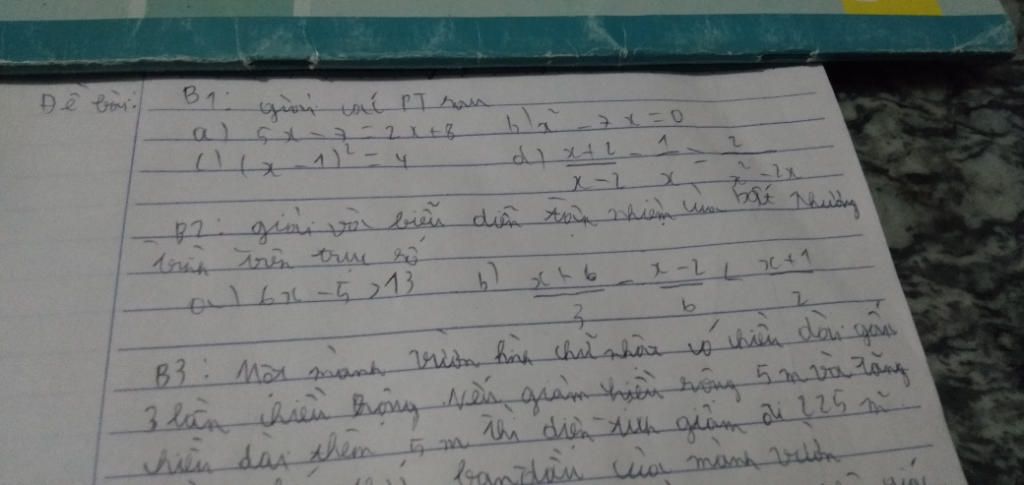 Đề bài: B1: giải các PT sau
a) 5x - 7 = 2x + 8 b) x² - 7x = 0
c) (x - 1)² = 4 d) (x+2)/(x-2) - 1/x = 2/(x²-2x)
B2: giải và biểu diễn tập nghiệm của bất phương
trình trên trục số
a) 6x - 5 > 13 b) (x+6)/3 - (x-2)/6 < (x+1)/2
B3: Một mảnh vườn hình chữ nhật có chiều dài gấp
3 lần chiều rộng. Nếu giảm chiều rộng 5 m và tăng
chiều dài thêm 5 m thì diện tích giảm đi 225 m²
ban đầu của mảnh vườn